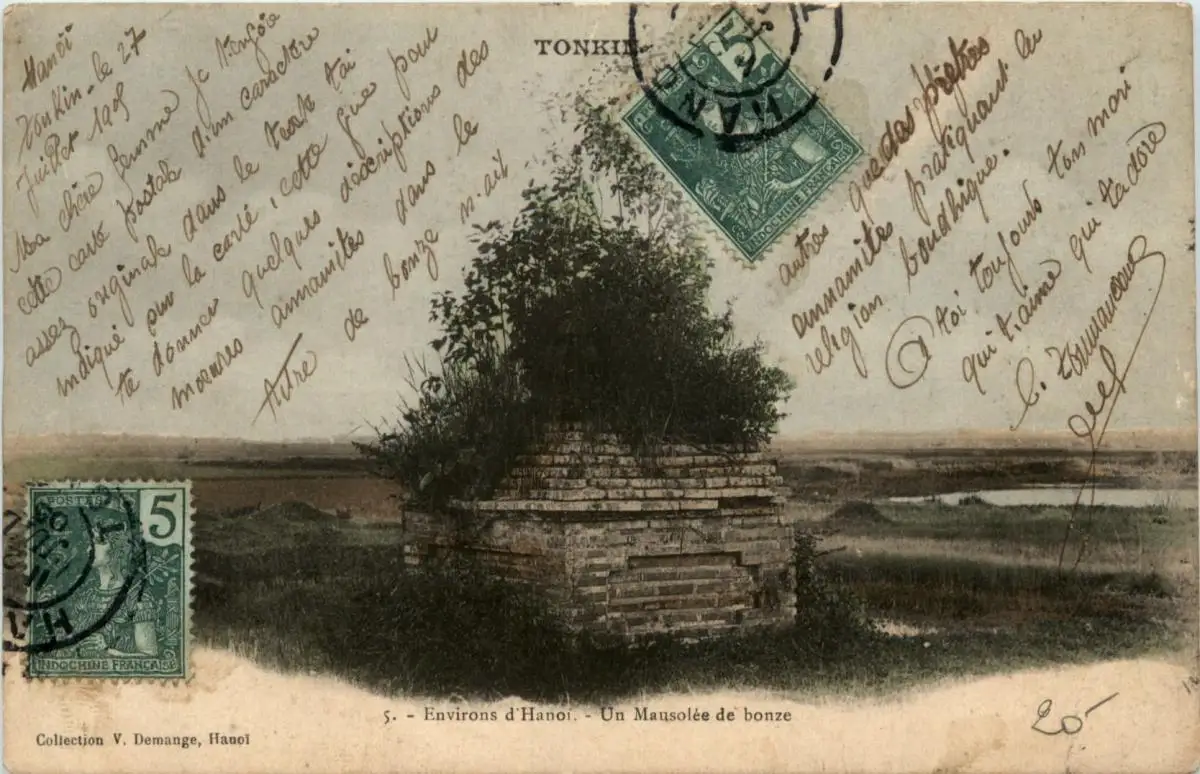 TONKIN
Hanoï
Tonkin. le 27
Juillet 1905
Ma chère femme je t'envoie
cette carte postale d'un caractère
assez originale dans le texte t'ai
indiqué sur la carte, cette fois pour
te donner quelques déscriptions des
moeurs annamites dans le
Autre de bonze n.ait
autres que des prêtres
annamites pratiquant la
religion boudhique.
A toi toujours ton mari
qui t'aime qui t'adore
POSTES
5
INDOCHINE FRANÇAISE
5
INDOCHINE FRANÇAISE
HANOI
5. - Environs d'Hanoï. - Un Mausolée de bonze
Collection V. Demange, Hanoï
20-